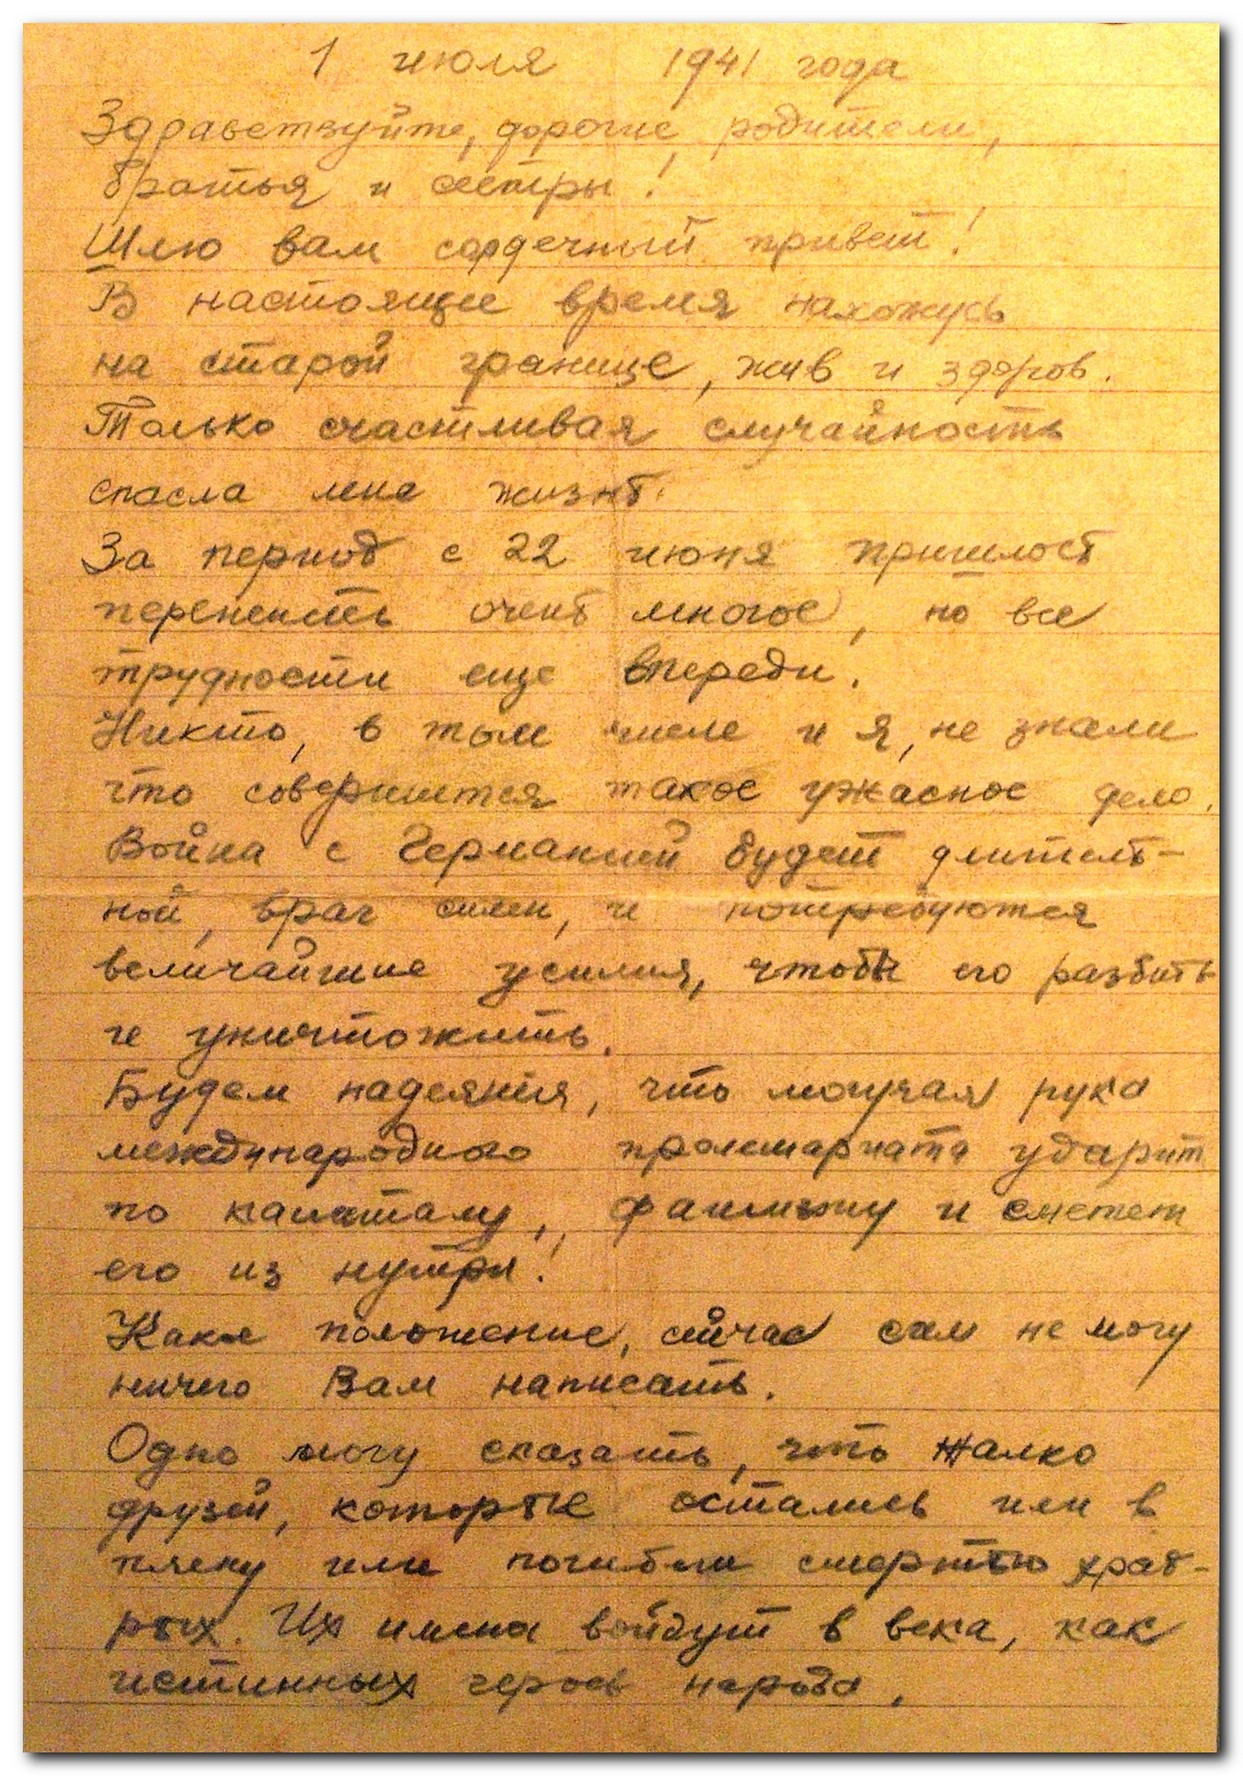 1 июля 1941 года
Здравствуйте, дорогие родители,
братья и сестры!
Шлю вам сердечный привет!
В настоящее время нахожусь
на старой границе, жив и здоров.
Только счастливая случайность
спасла мне жизнь.
За период с 22 июня пришлось
перенесть очень многое, но все
трудности еще впереди.
Никто, в том числе и я, не знали
что совершится такое ужасное дело.
Война с Германией будет длитель-
ной, враг силен, и потребуются
величайшие усилия, чтобы его разбить
и уничтожить.
Будем надеяться, что могучая рука
международного пролетариата ударит
по капиталу, фашизму и сметет
его из нутри!
Какое положение, сейчас сам не могу
ничего Вам написать.
Одно могу сказать, что жалко
друзей, которые остались или в
плену или погибли смертью храб-
рых. Их имена войдут в века, как
истинных героев народа.